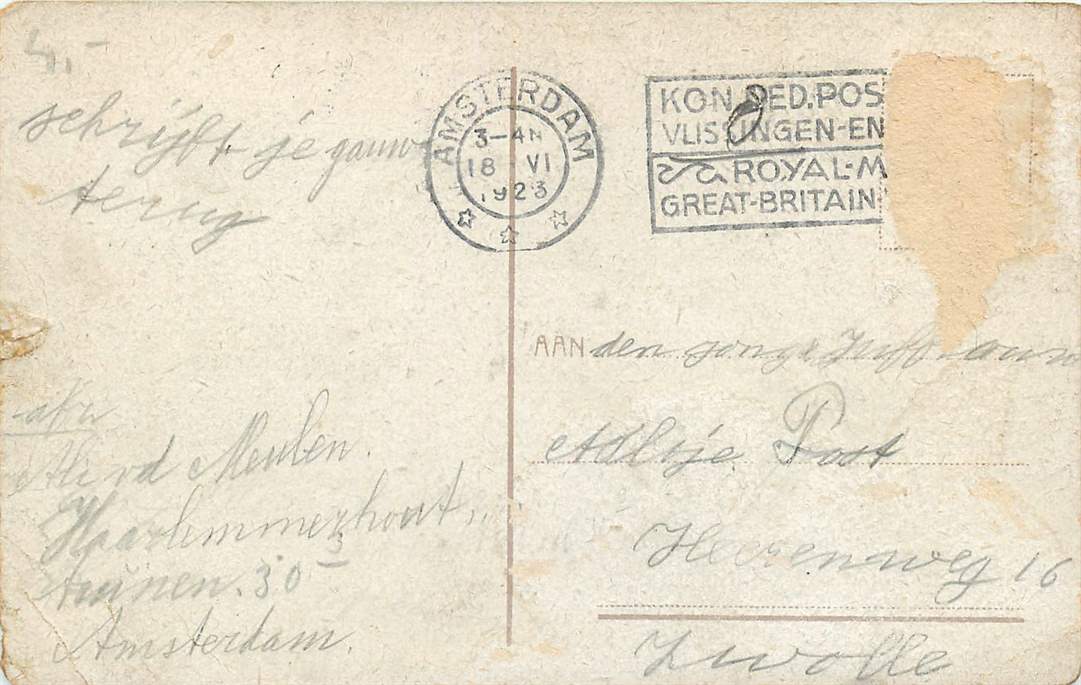 4.-
schrijft je gauw
terug
AMSTERDAM
3-4 N
18 VI
1923
KON. NED. POS
VLISSINGEN-EN
ROYAL-M
GREAT-BRITAIN
AAN den jonge Juffrouw
Aaltje Post
Heerenweg 16
Zwolle
afz
vd Meulen.
Haarlemmerhout
tuinen. 30 3
Amsterdam.